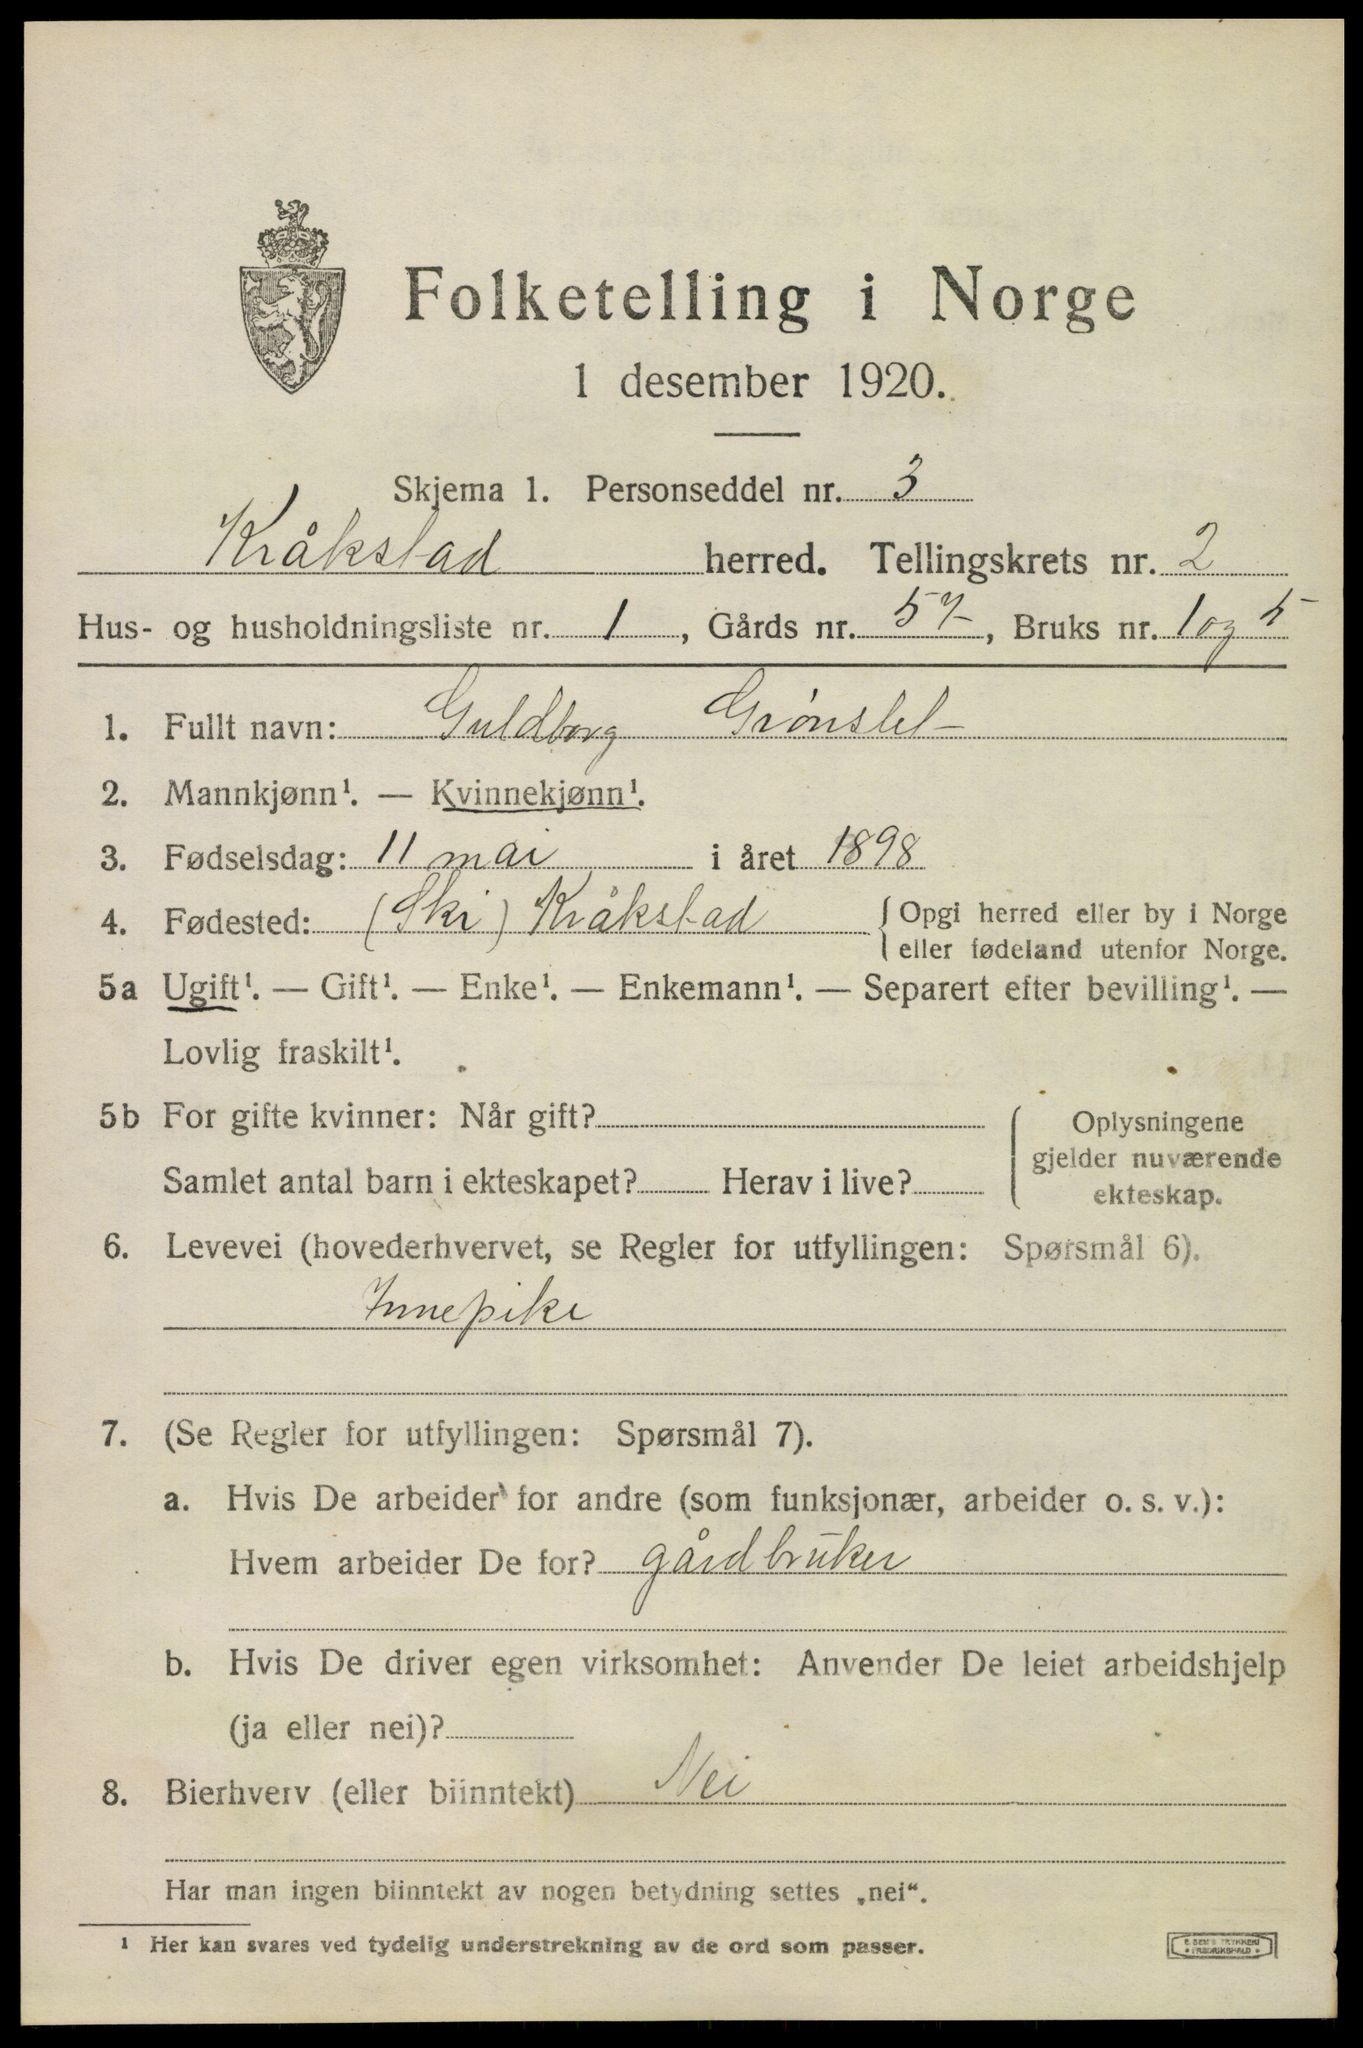 Folketelling i Norge
1 desember 1920.
Skjema 1. Personseddel nr. 3
Kråkstad herred. Tellingskrets nr. 2
Hus- og husholdningsliste nr. 1, Gårds nr. 57, Bruks nr. 1 og 5
1. Fullt navn: Guldborg Grønslet
2. Mannkjønn¹. — Kvinnekjønn¹.
3. Fødselsdag: 11 mai i året 1898
4. Fødested: (Ski) Kråkstad { Opgi herred eller by i Norge
eller fødeland utenfor Norge.
5a Ugift¹. — Gift¹. — Enke¹. — Enkemann¹. — Separert efter bevilling¹. —
Lovlig fraskilt¹.
5b For gifte kvinner: Når gift?
Samlet antal barn i ekteskapet? Herav i live?
Oplysningene
gjelder nuværende
ekteskap.
6. Levevei (hovederhvervet, se Regler for utfyllingen: Spørsmål 6).
Innepike
7. (Se Regler for utfyllingen: Spørsmål 7).
a. Hvis De arbeider for andre (som funksjonær, arbeider o. s. v.):
Hvem arbeider De for? gårdbruker
b. Hvis De driver egen virksomhet: Anvender De leiet arbeidshjelp
(ja eller nei)?
8. Bierhverv (eller biinntekt) Nei
Har man ingen biinntekt av nogen betydning settes „nei“.
¹ Her kan svares ved tydelig understrekning av de ord som passer.
E. SEM'S TRYKKERI
FREDRIKSHALD